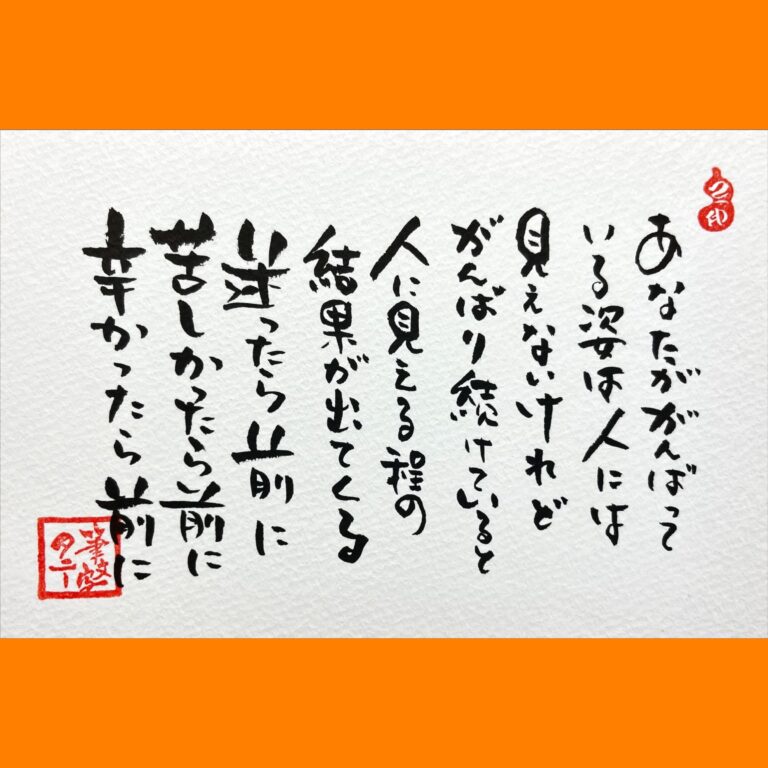 あなたががんばって
いる姿は人には
見えないけれど
がんばり続けていると
人に見える程の
結果が出てくる
迷ったら前に
苦しかったら前に
辛かったら前に